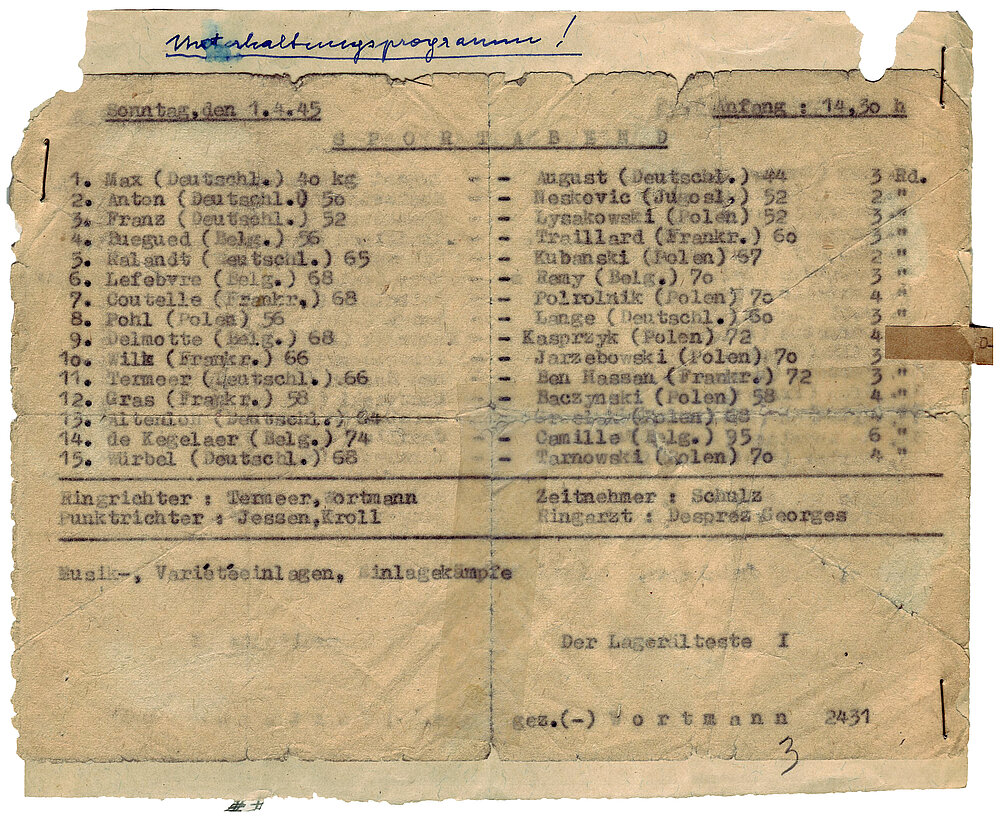 Unterhaltungsprogramm!
Sonntag,den 1.4.45 Anfang : 14,3o h
S P O R T A B E N D
1. Max (Deutschl.) 4o kg - - August (Deutschl.) 44 3 Rd.
2. Anton (Deutschl.) 5o - - Neskovic (Jugosl.) 52 2 "
3. Franz (Deutschl.) 52 - - Lysakowski (Polen) 52 3 "
4. Buegued (Belg.) 56 - - Traillard (Frankr.) 6o 3 "
5. Ralandt (Deutschl.) 65 - - Kubanski (Polen) 67 2 "
6. Lefebvre (Belg.) 68 - - Remy (Belg.) 7o 3 "
7. Coutelle (Frankr.) 68 - - Polrolnik (Polen) 7o 4 "
8. Pohl (Polen) 56 - - Lange (Deutschl.) 6o 3 "
9. Delmotte (Belg.) 68 - Kasprzyk (Polen) 72 4
1o. Wilk (Frankr.) 66 - Jarzebowski (Polen) 7o 3
11. Termeer (Deutschl.) 66 - - Ben Hassen (Frankr.) 72 3 "
12. Gras (Frankr.) 58 - - Baczynski (Polen) 58 4 "
13. (Deutschl.) 64 (Polen) 68 4 "
14. de Kegelaer (Belg.) 74 - - Camille (Belg.) 95 6 "
15. Würbel (Deutschl.) 68 - - Tarnowski (Polen) 7o 4 "
Ringrichter : Termeer,Wortmann Zeitnehmer : Schulz
Punktrichter : Jessen,Kroll Ringarzt : Desprez Georges
Musik-, Varietéeinlagen, Einlagekämpfe
Der Lagerälteste I
gez.(-) W o r t m a n n 2431
3